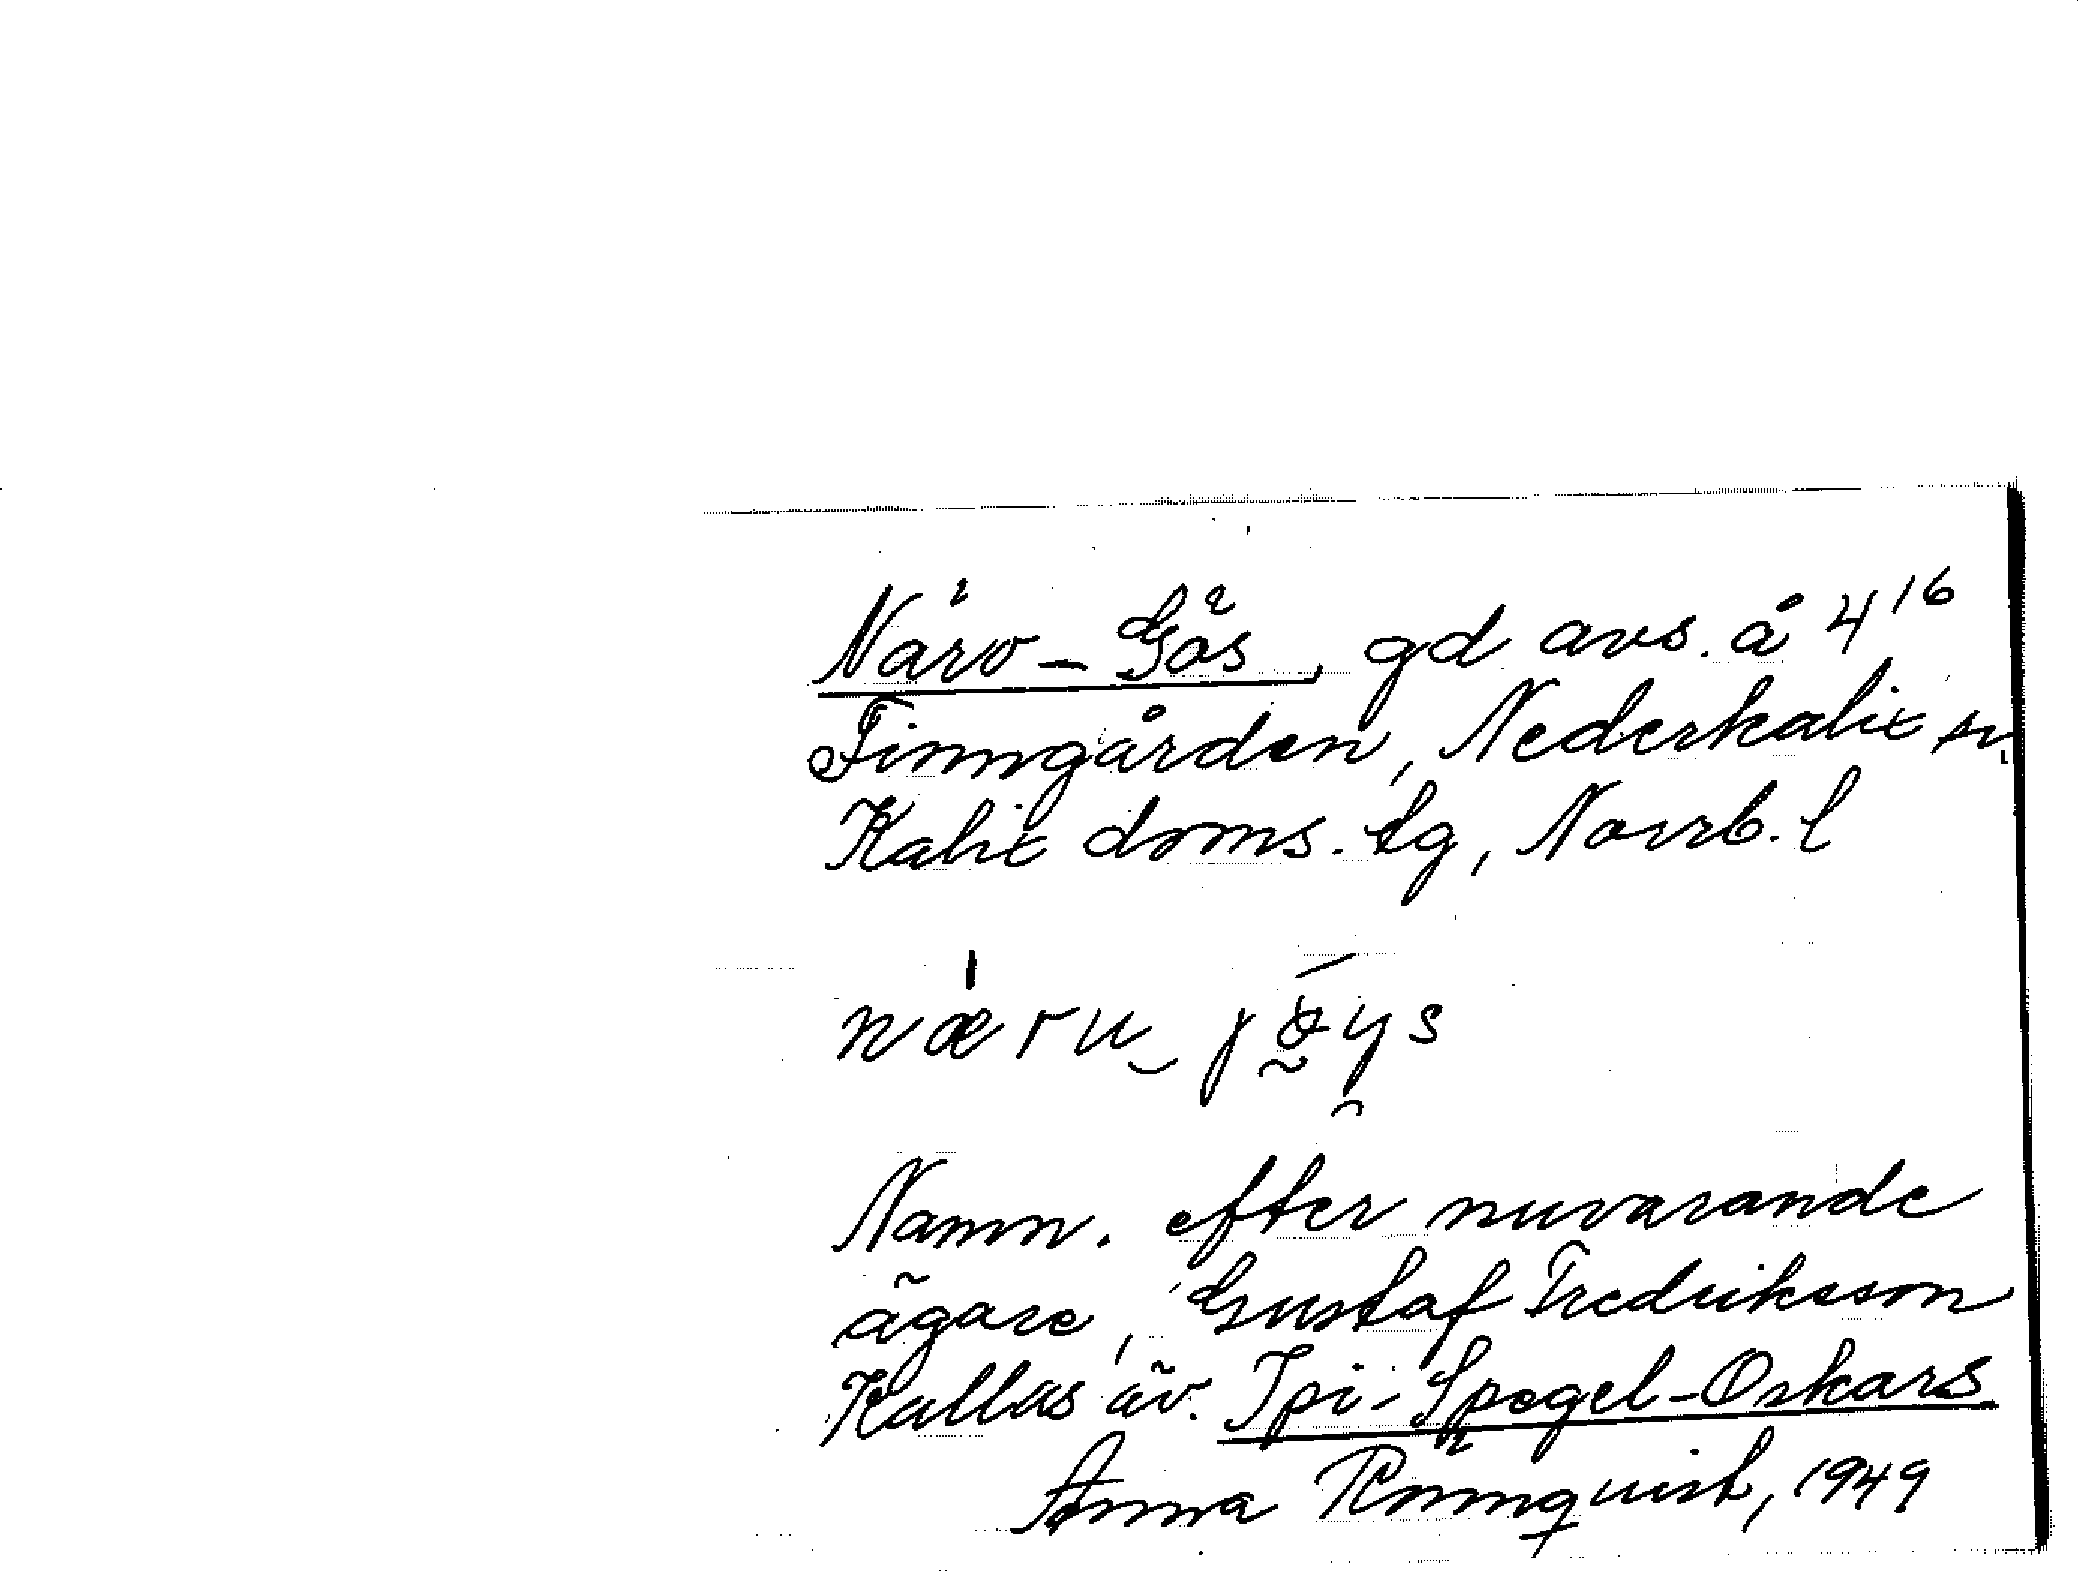 Närv-Gös, gd avs. å 4¹⁶
Finngården, Nederkalix sn,
Kalix doms. tg, Norrb. l
Namn. efter nuvarande
ägare, Gustaf Fredriksson
Kallas äv. Ipi-Spegel-Oskars
Anna Rönnquist, 1949